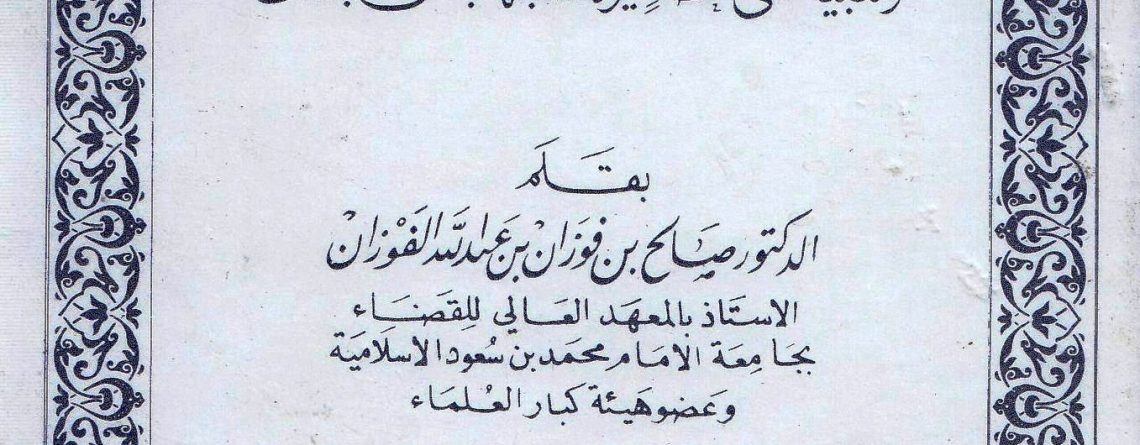 بقَلَم
الدكتور صَالح بن فوزَان بن عَبد الله الفَوْزان
الاستَاذ بالمعهَد العَالي للِقَضَاء
بجَامِعَة الامَام محمَد بن سُعود الاسلاميَة
وعَضو هَيئة كبار العُلمَاء